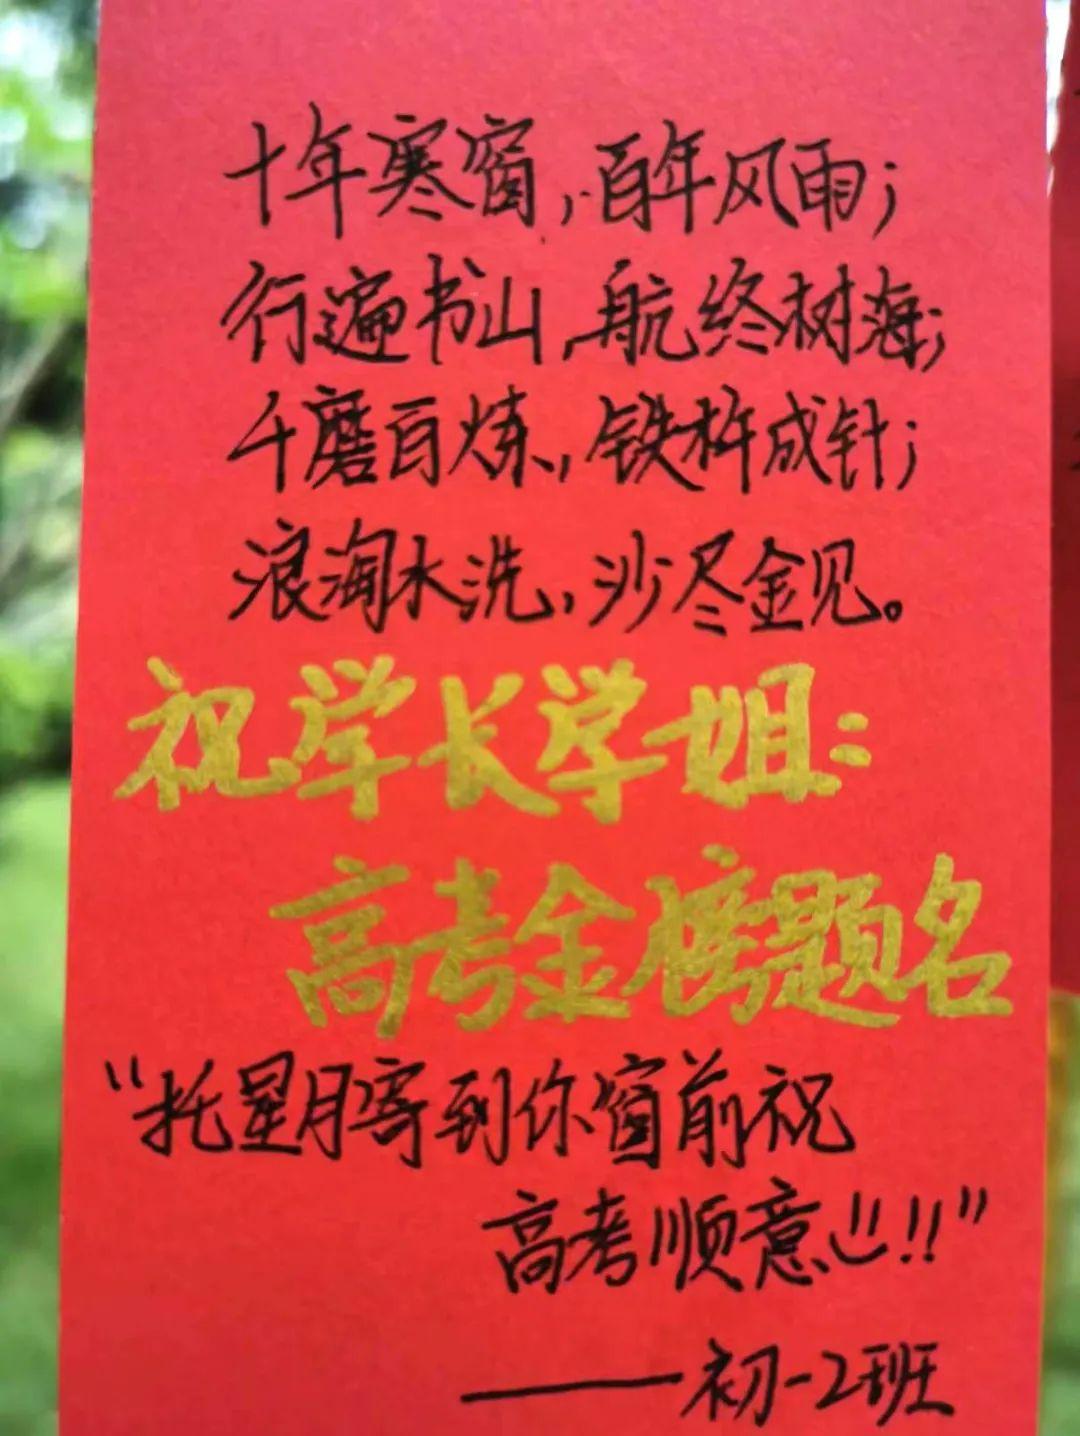 十年寒窗，百年风雨；
行遍书山，航终树海；
千磨百炼，铁杵成针；
浪淘水洗，沙尽金见。
祝学长学姐：
高考金榜题名
“托星月寄到你窗前祝
高考顺意!!!”
——初一2班